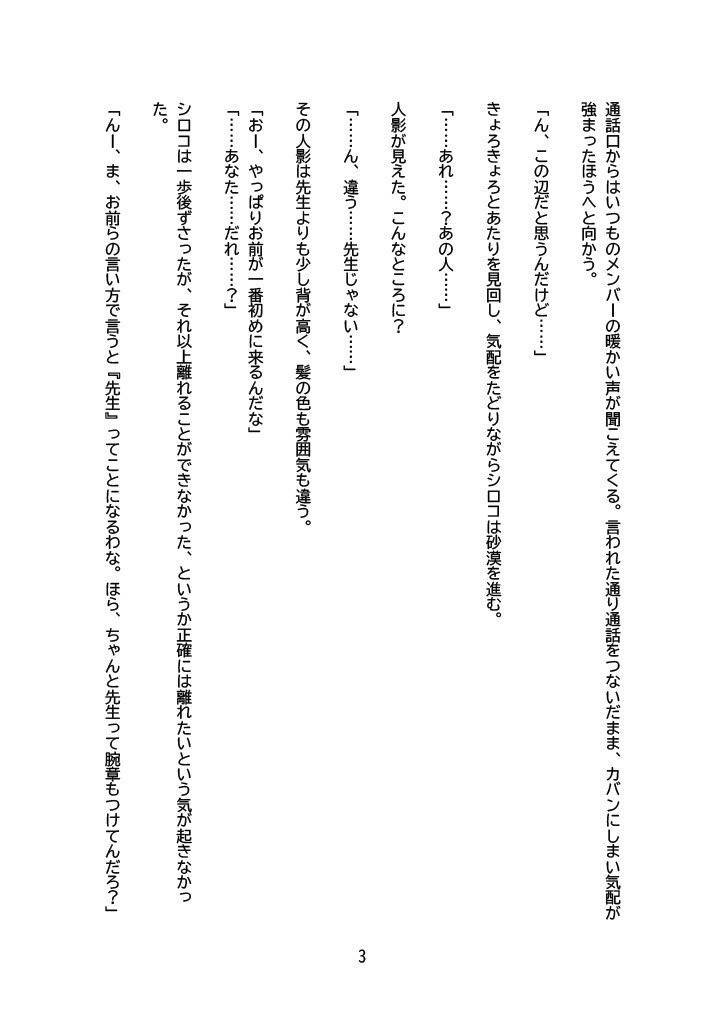 通話口からはいつものメンバーの暖かい声が聞こえてくる。言われた通り通話をつないだまま、カバンにしまい気配が
強まったほうへと向かう。
「ん、この辺だと思うんだけど……」
きょろきょろとあたりを見回し、気配をたどりながらシロコは砂漠を進む。
「……あれ……？あの人……」
人影が見えた。こんなところに？
「……ん、違う……先生じゃない……」
その人影は先生よりも少し背が高く、髪の色も雰囲気も違う。
「おー、やっぱりお前が一番初めに来るんだな」
「……あなた……だれ……？」
シロコは一歩後ずさったが、それ以上離れることができなかった、というか正確には離れたいという気が起きなかっ
た。
「んー、ま、お前らの言い方で言うと『先生』ってことになるわな。ほら、ちゃんと先生って腕章もつけてんだろ？」
3